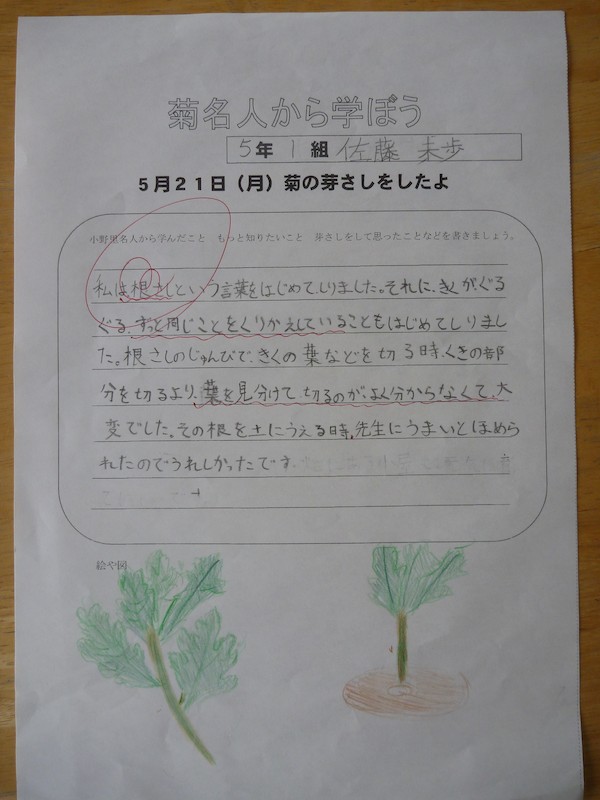 菊名人から学ぼう
5年 1 組 佐藤 未歩
5月21日（月）菊の芽さしをしたよ
小野里名人から学んだこと　もっと知りたいこと　芽さしをして思ったことなどを書きましょう。
私は根さしという言葉をはじめてしりました。それに、きくがぐる
ぐる、ずっと同じことをくりかえしていることもはじめてしりまし
た。根さしのじゅんびで、きくの葉などを切る時、くきの部
分を切るより、葉を見分けて切るのが、よく分からなくて、大
変でした。その根を土にうえる時、先生にうまいとほめら
れたのでうれしかったです。
絵や図